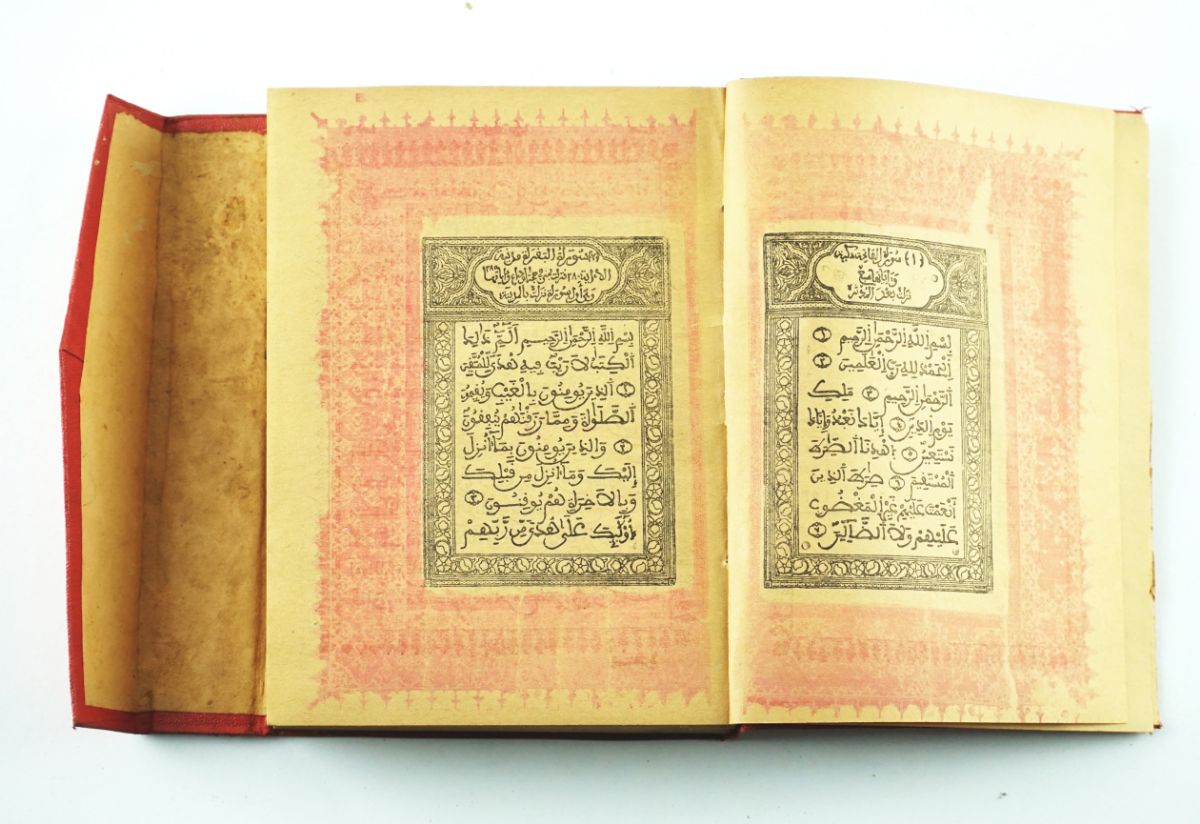 (١) سورة الفاتحة مكية
وءاياتها سبع
نزلت بعد المدثر
بِسْمِ اِللَّهِ اِلرَّحْمَٰنِ اِلرَّحِيمِ ١
اِلْحَمْدُ لِلهِ رَبِّ اِلْعَٰلَمِينَ ٢
اَلرَّحْمَٰنِ اِلرَّحِيمِ ٣ مَلِكِ
يَوْمِ اِلدِّينِ ٤ إِيَّاكَ نَعْبُدُ وَإِيَّاكَ
نَسْتَعِينُ ٥ اِهْدِنَا اَلصِّرَٰطَ
اَلْمُسْتَقِيمَ ٦ صِرَٰطَ اَلذِينَ
أَنْعَمْتَ عَلَيْهِمْ غَيْرِ اِلْمَغْضُوبِ
عَلَيْهِمْ وَلَا اَلضَّآلِّينَ ٧
سورة البقرة مدنية
وهي أول سورة نزلت بالمدينة
بِسْمِ اِللَّهِ اِلرَّحْمَٰنِ اِلرَّحِيمِ أَلَمِّٓ ذَٰلِكَ
اَلْكِتَٰبُ لَا رَيْبَ فِيهِ هُدىً لِّلْمُتَّقِينَ
١ اَلذِينَ يُومِنُونَ بِالْغَيْبِ وَيُقِيمُونَ
اَلصَّلَوٰةَ وَمِمَّا رَزَقْنَٰهُمْ يُنفِقُونَ
٢ وَالذِينَ يُومِنُونَ بِمَآ أُنزِلَ
إِلَيْكَ وَمَآ أُنزِلَ مِن قَبْلِكَ
وَبِالَاخِرَةِ هُمْ يُوقِنُونَ ٣
أُوْلَٰٓئِكَ عَلَىٰ هُدىً مِّن رَّبِّهِمْ